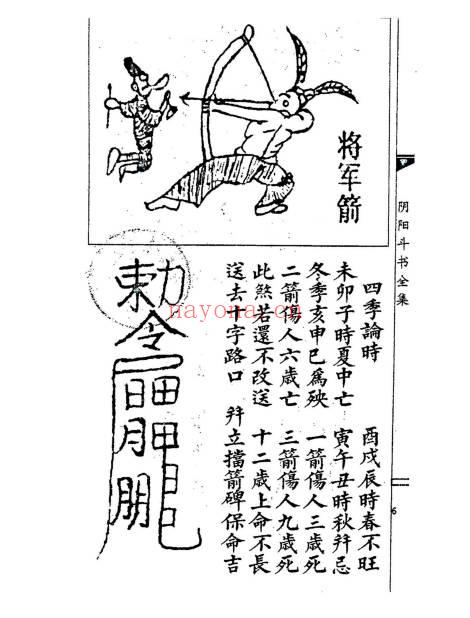 阴阳斗书全集
6
将军箭
四季論時 酉戌辰時春不旺
未卯子時夏中亡 寅午丑時秋并忌
冬季亥申巳為殃 一箭傷人三歲死
二箭傷人六歲亡 三箭傷人九歲死
此煞若還不改送 十二歲上命不長
送去十字路口 并立擋箭碑保命吉
勅令
nayona.cn